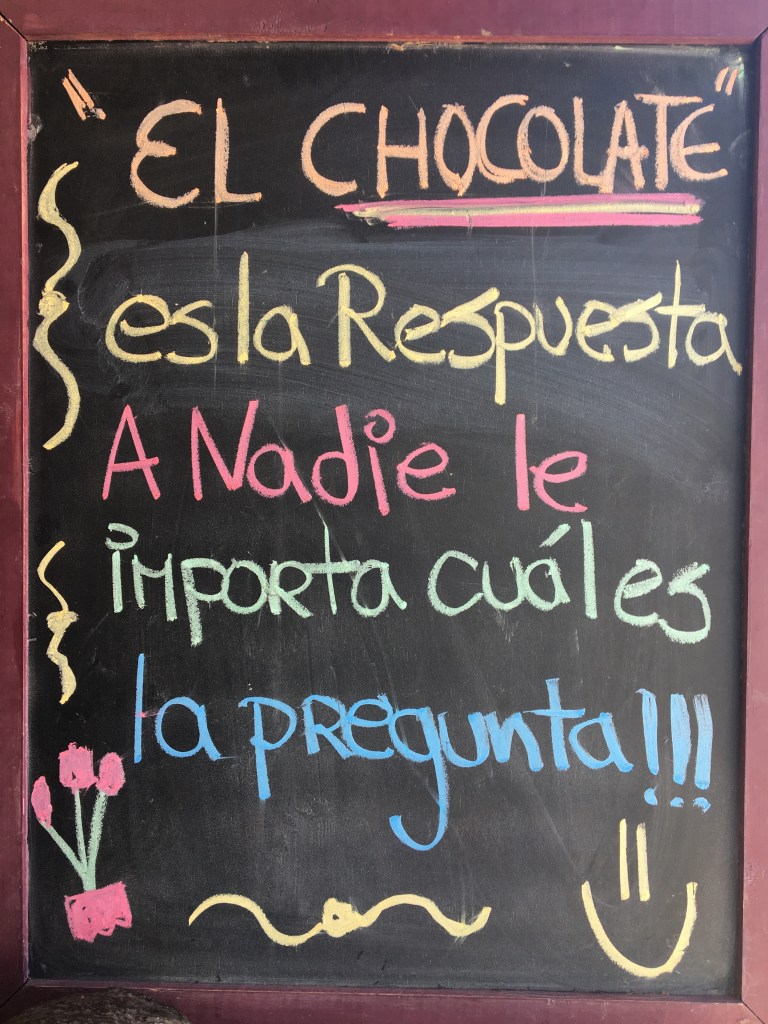 "EL CHOCOLATE"
es la Respuesta
A Nadie le
importa cuál es
la pregunta!!!